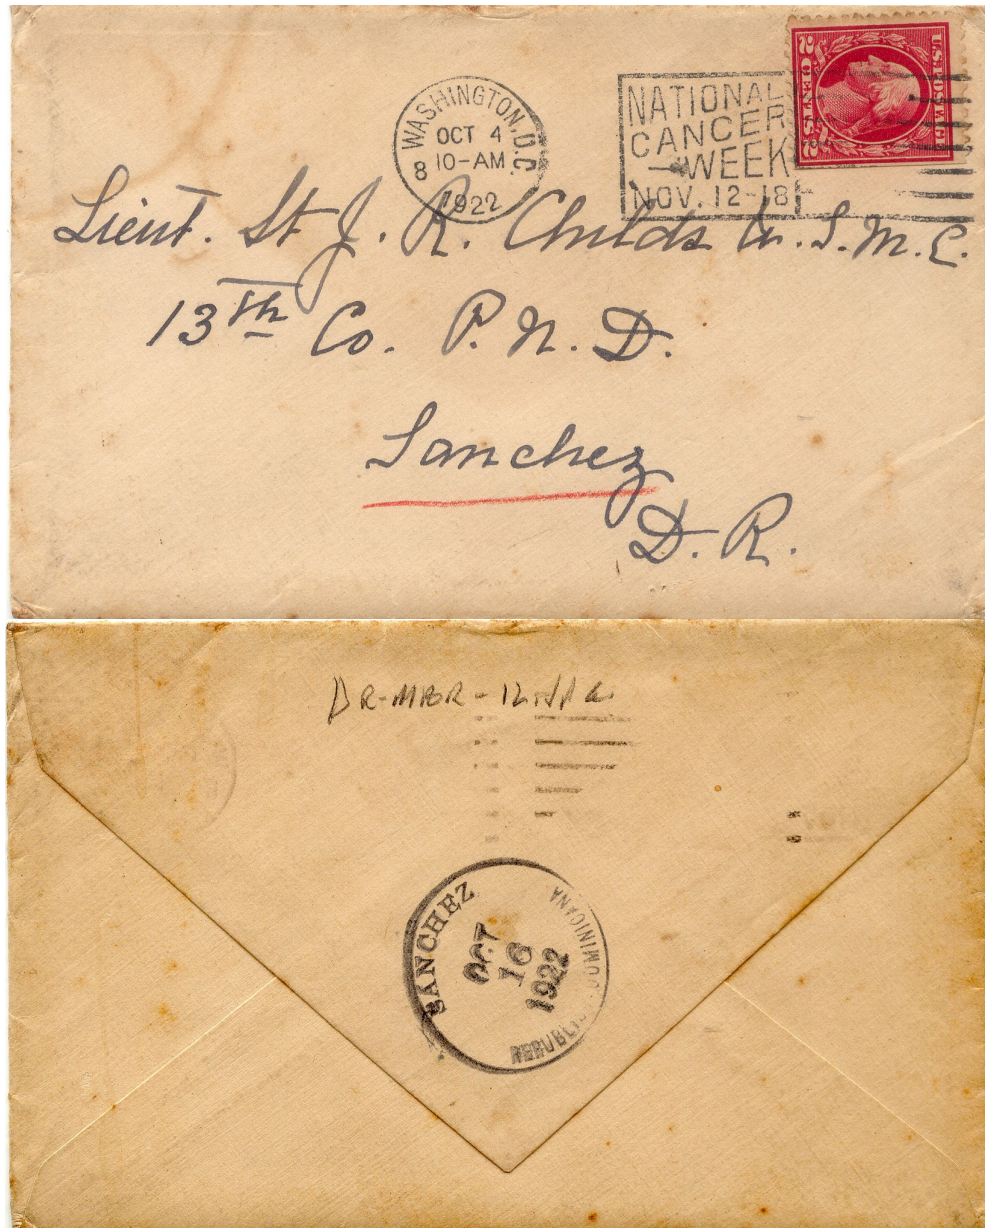 WASHINGTON, D.C.
OCT 4
8 10-AM
1922
NATIONAL
CANCER
WEEK
NOV. 12-18
U.S. POSTAGE
2 CENTS 2
Lieut. St J. R. Childs U.S.M.C.
13th Co. P.N.D.
Sanchez
D.R.
DR-MBR-12
SANCHEZ
OCT
16
1922
REPUBLICA DOMINICANA